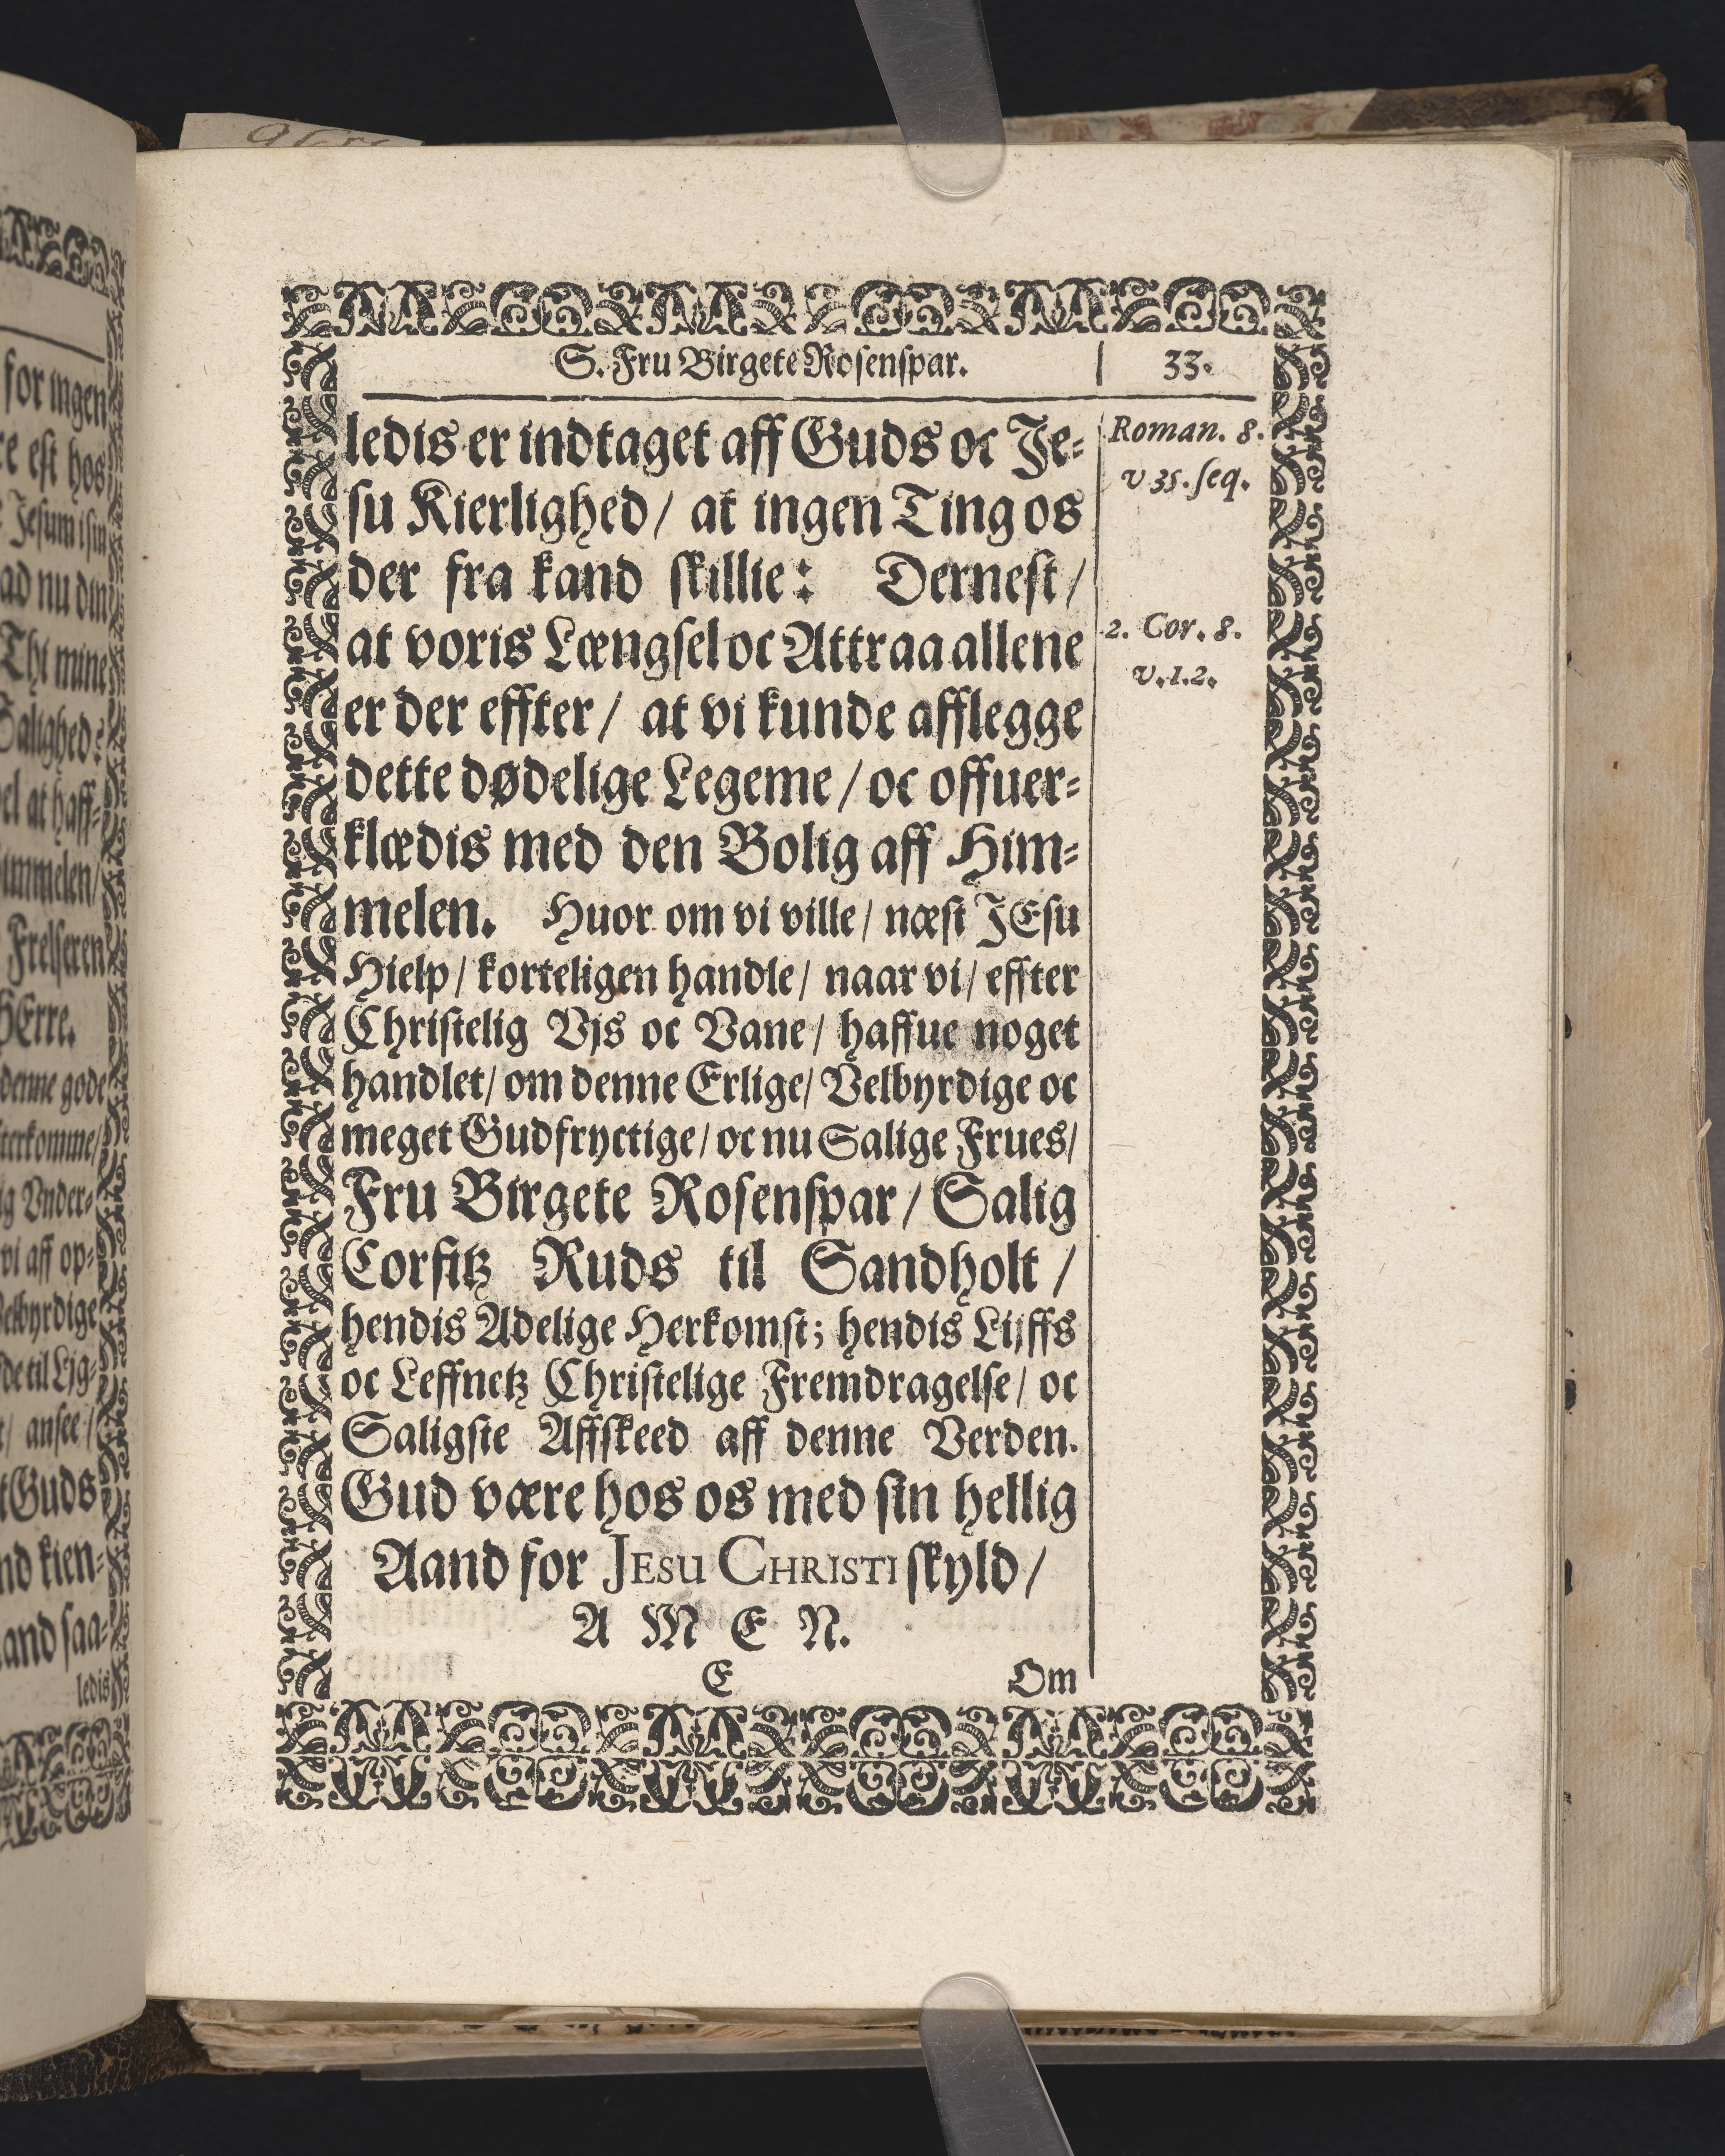 S. Fru Birgete Rosenspar. 33.
ledis er indtaget aff Guds oc Je-
su Kierlighed/ at ingen Ting os
der fra kand skillie: Dernest/
at voris Længsel oc Attraa allene
er der effter/ at vi kunde afflegge
dette dødelige Legeme/ oc offuer-
klædis med den Bolig aff Him-
melen. Huor om vi ville/ næst JEsu
Hielp/ korteligen handle/ naar vi/ effter
Christelig Vjs oc Vane/ haffue noget
handlet/ om denne Erlige/ Velbyrdige oc
meget Gudfryctige/ oc nu Salige Frues/
Fru Birgete Rosenspar/ Salig
Corfitz Ruds til Sandholt/
hendis Adelige Herkomst; hendis Lijffs
oc Leffnetz Christelige Fremdragelse/ oc
Saligste Affskeed aff denne Verden.
Gud være hos os med sin hellig
Aand for JESU CHRISTI skyld/
A M E N.
E Om
Roman. 8.
v 35. seq.
2. Cor. 8.
v. 1. 2.
for ingen
est hos
Jesum
nu din
Thi mine
Salighed:
at haff-
Frelseren
HErre.
denne gode
Vnder-
vi aff op-
til Lig-
ansee/
Guds
kien-
saa-
ledis